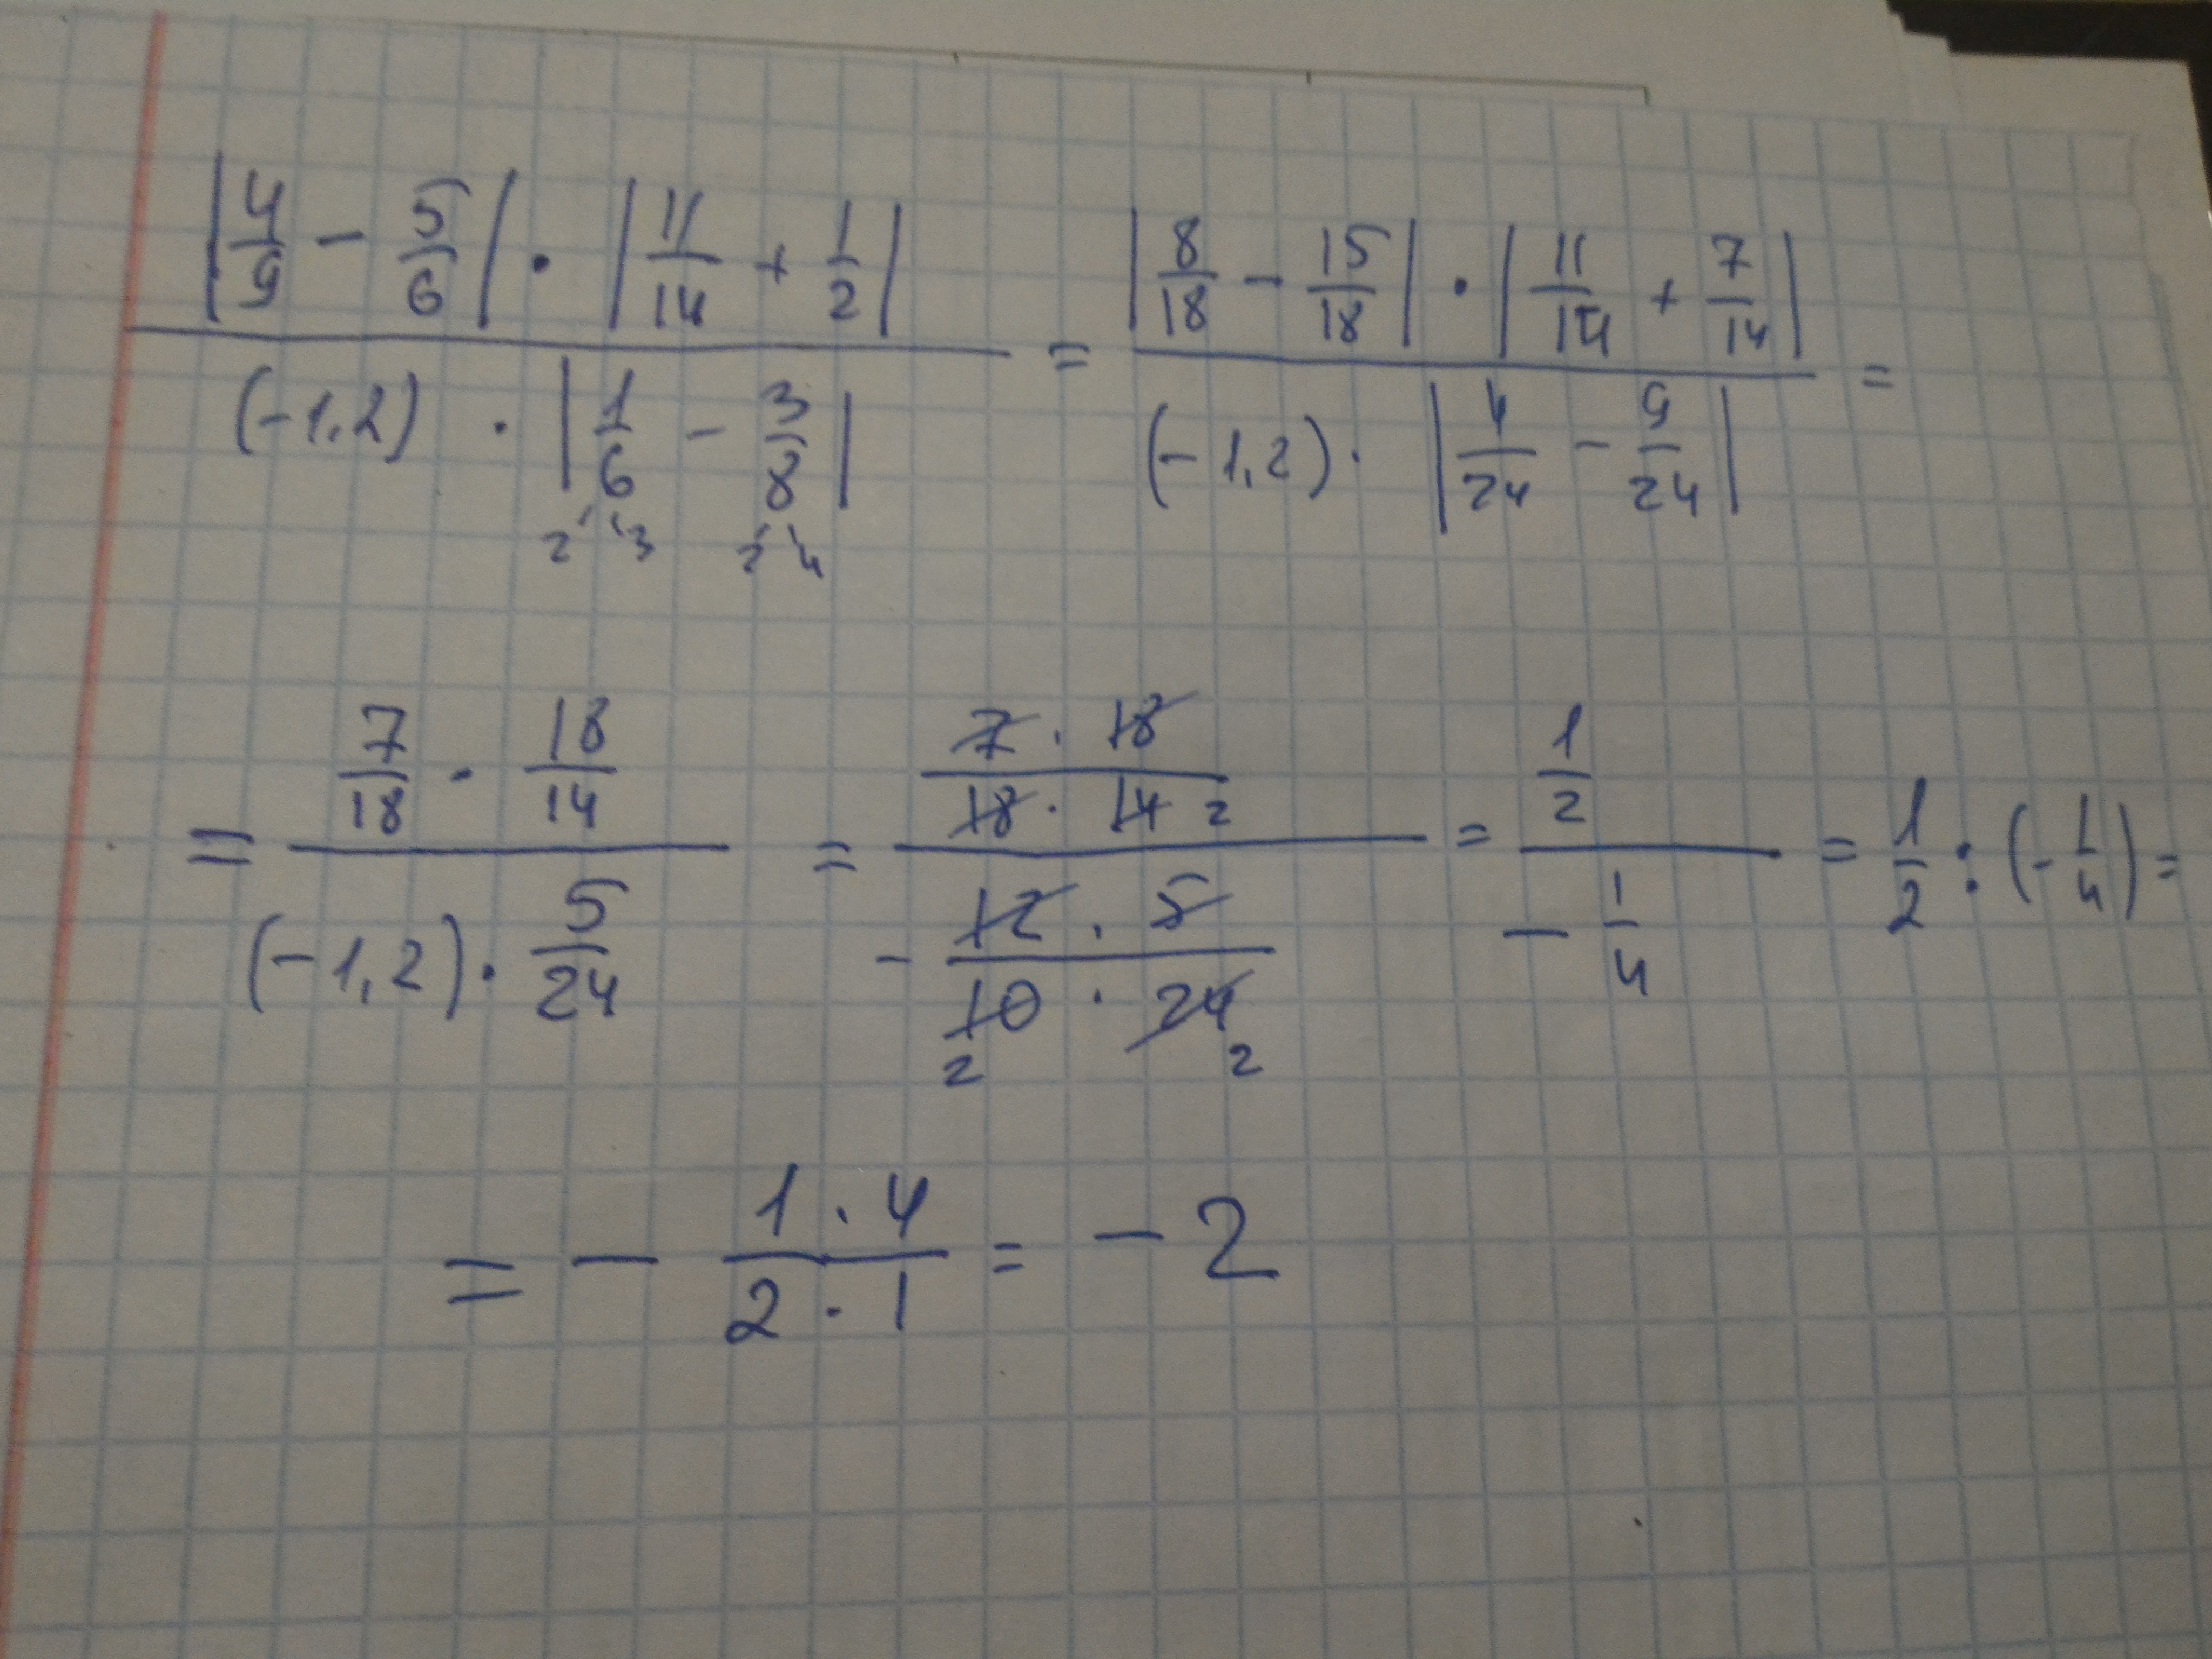 |4/9 - 5/6| · |11/14 + 1/2| / (-1,2) · |1/6 - 3/8| = |8/18 - 15/18| · |11/14 + 7/14| / (-1,2) · |4/24 - 9/24| =
2 3 2 4
= 7/18 · 18/14 / (-1,2) · 5/24 = 7 · 18 / 18 · 14 2 / - 12 · 5 / 10 · 24 2 2 = 1/2 / - 1/4 = 1/2 : (- 1/4) =
= - 1 · 4 / 2 · 1 = - 2